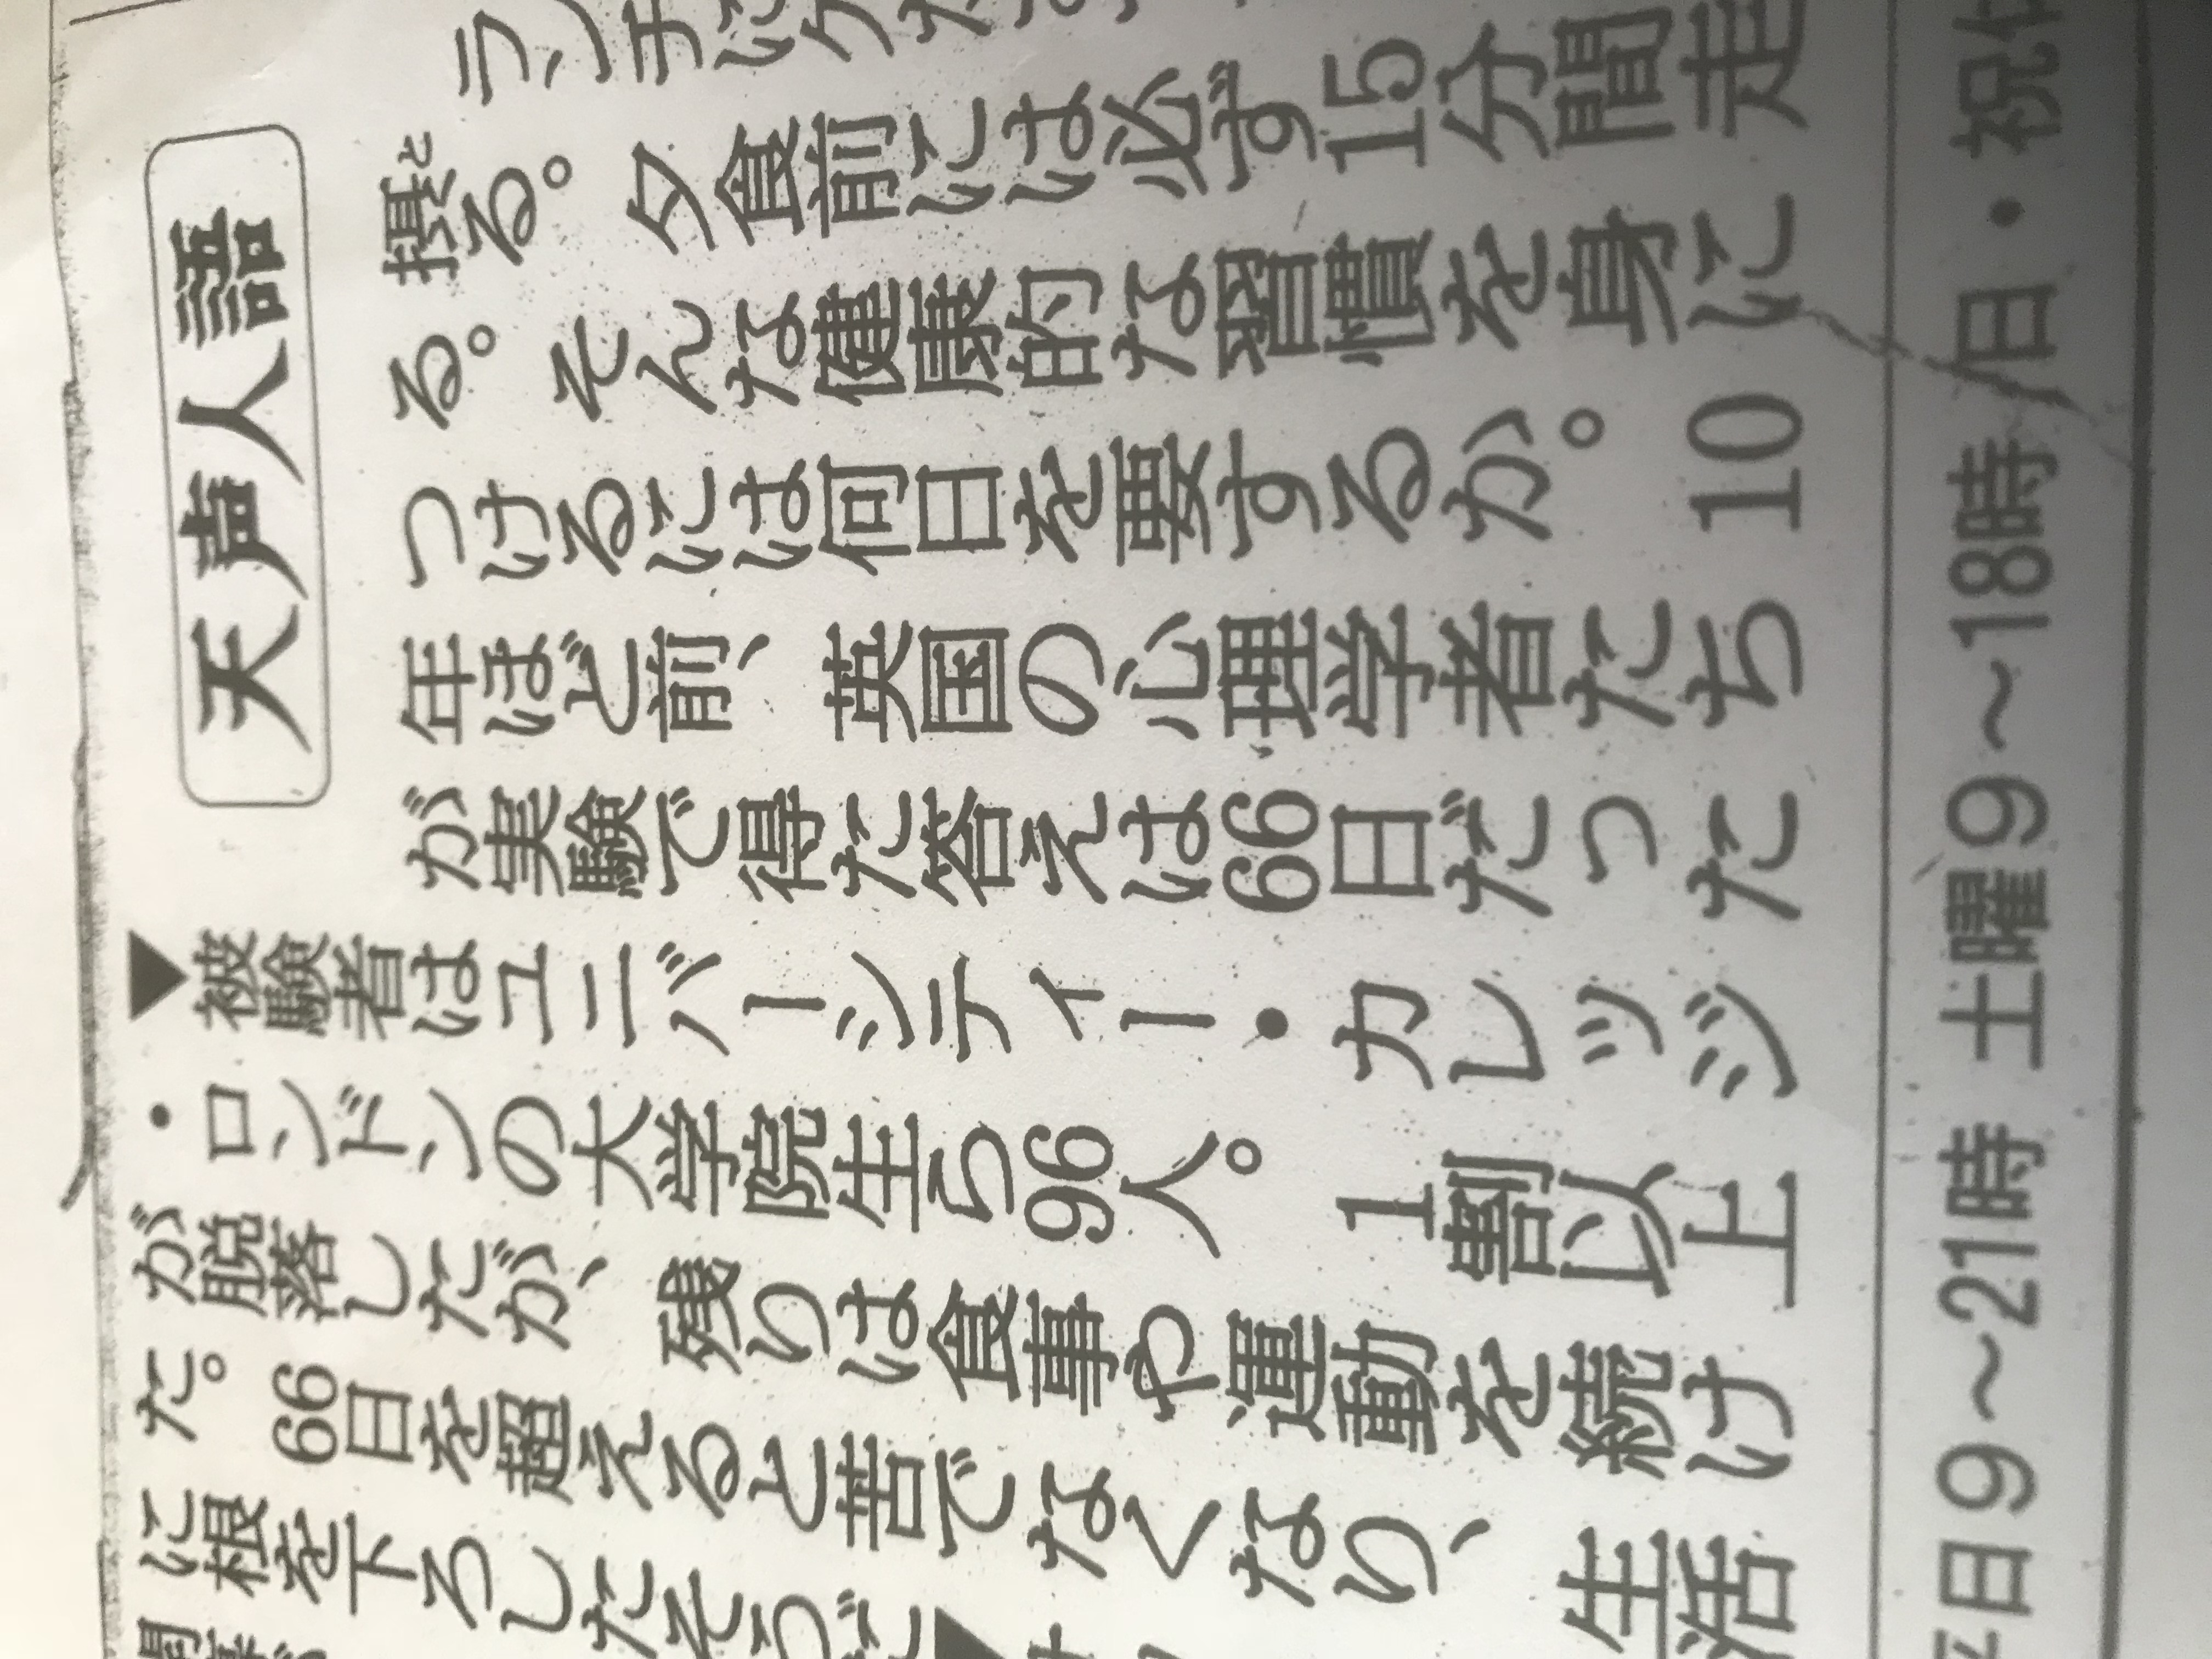 天声人語
ランチに
摂と
る。夕食前には必ず15分間走
る。そんな健康的な習慣を身に
つけるには何日を要するか。10
年ほど前、英国の心理学者たち
が実験で得た答えは66日だった
▼被験者はユニバーシティー・カレッジ
・ロンドンの大学院生ら96人。1割以上
が脱落したが、残りは食事や運動を続け
た。66日を超えると苦でなくなり、生活
に根を下ろしたそうだ▼
日9〜21時 土曜9〜18時/日・祝